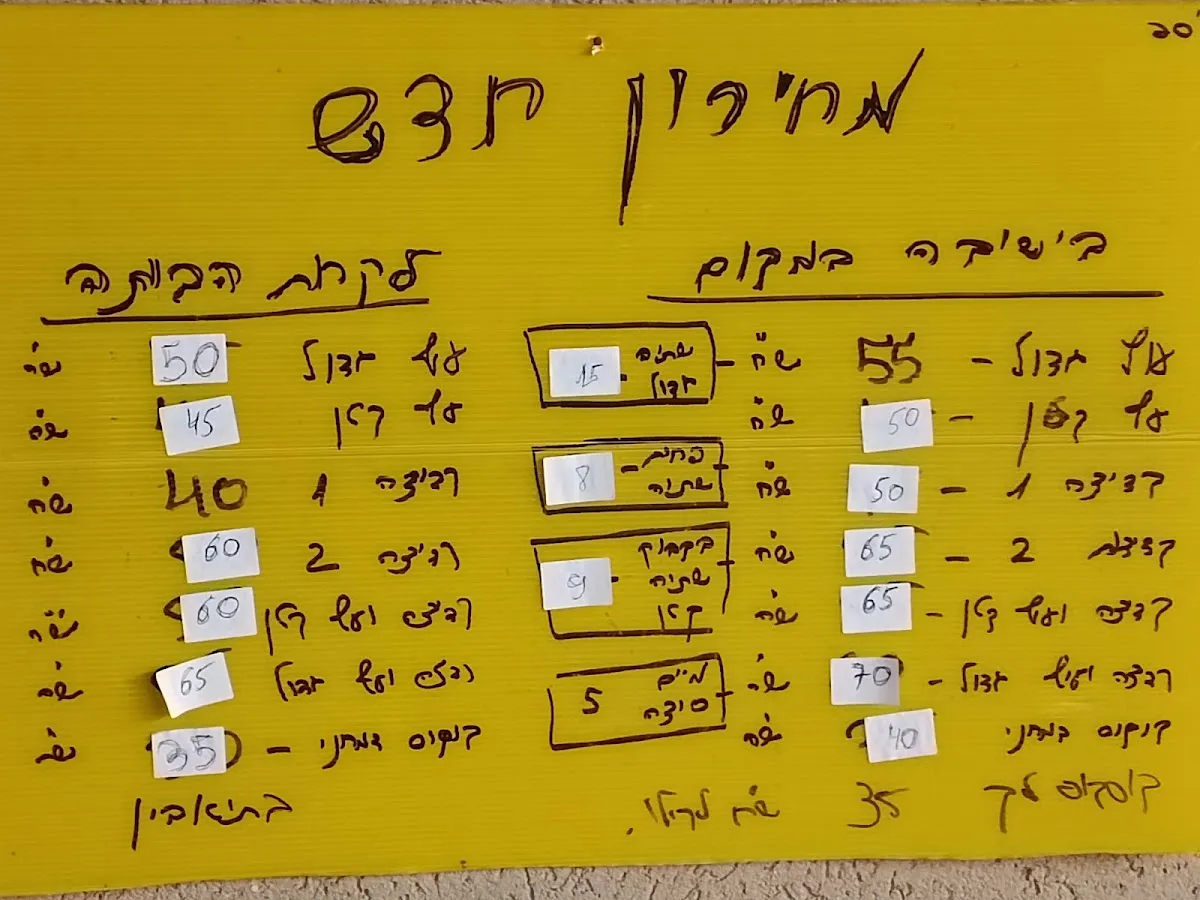 מחירון חדש
בישיבה במקום
עוף גדול - 55 ש"ח
עוף קטן - 50 ש"ח
קציצה 1 - 50 ש"ח
קציצות 2 - 65 ש"ח
קציצה ועוף קטן - 65 ש"ח
קציצה ועוף גדול - 70 ש"ח
קוסקוס צמחוני 40 ש"ח
קוסקוס לבן 35 ש"ח לקילו.
שתיה גדול 15
פחית שתיה 8
בקבוק שתיה קטן 9
מיים סודה 5
לקחת הביתה
עוף גדול 50 ש"ח
עוף קטן 45 ש"ח
קציצה 1 40 ש"ח
קציצה 2 60 ש"ח
קציצה ועוף קטן 60 ש"ח
קציצה ועוף גדול 65 ש"ח
קוסקוס צמחוני - 35 ש"ח
בתיאבון